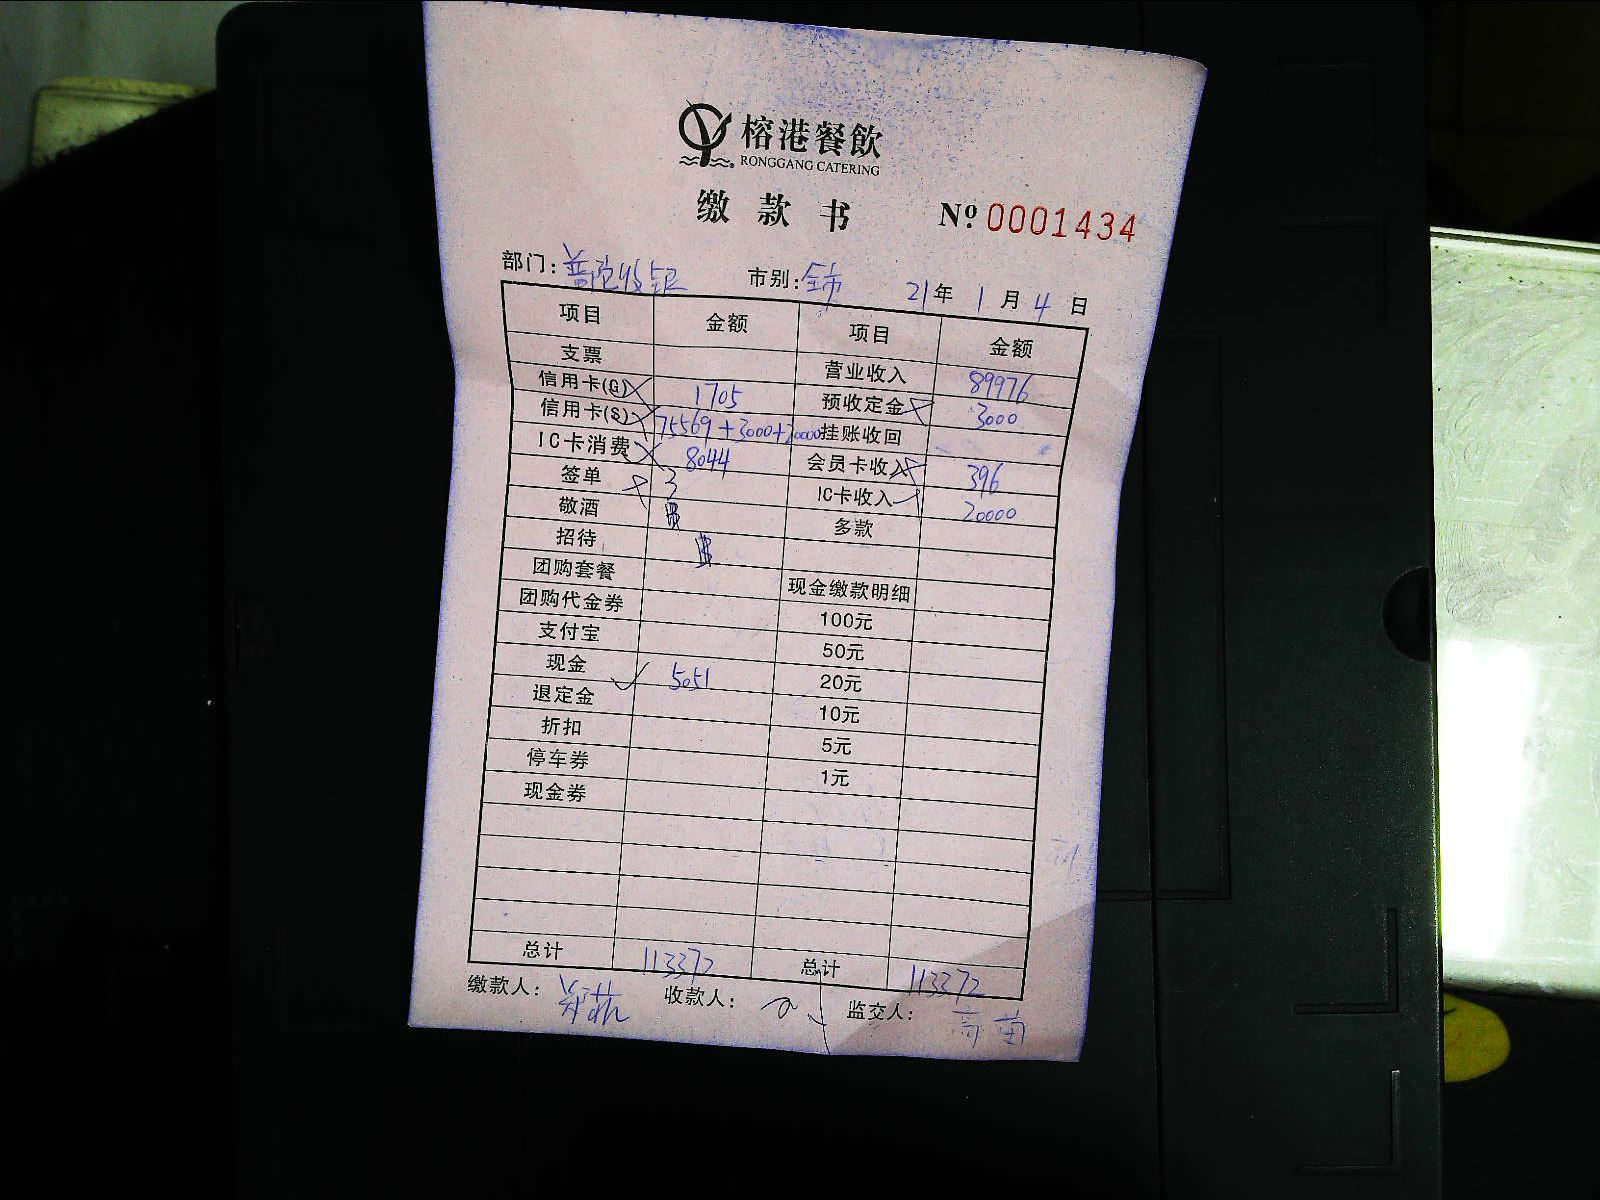 榕港餐飲
RONGGANG CATERING
缴款书 Nº 0001434
部门: 普陀收银 市别: 全市 21年 1月 4日
项目 金额 项目 金额
支票 营业收入 89976
信用卡(G) 1705 预收定金 3000
信用卡(S) 75569+3000+20000 挂账收回
IC卡消费 8044 会员卡收入 396
签单 3 IC卡收入 20000
敬酒 多款
招待
团购套餐 现金缴款明细
团购代金券 100元
支付宝 50元
现金 5051 20元
退定金 10元
折扣 5元
停车券 1元
现金券
总计 113372 总计 113372
缴款人: 收款人: 监交人: